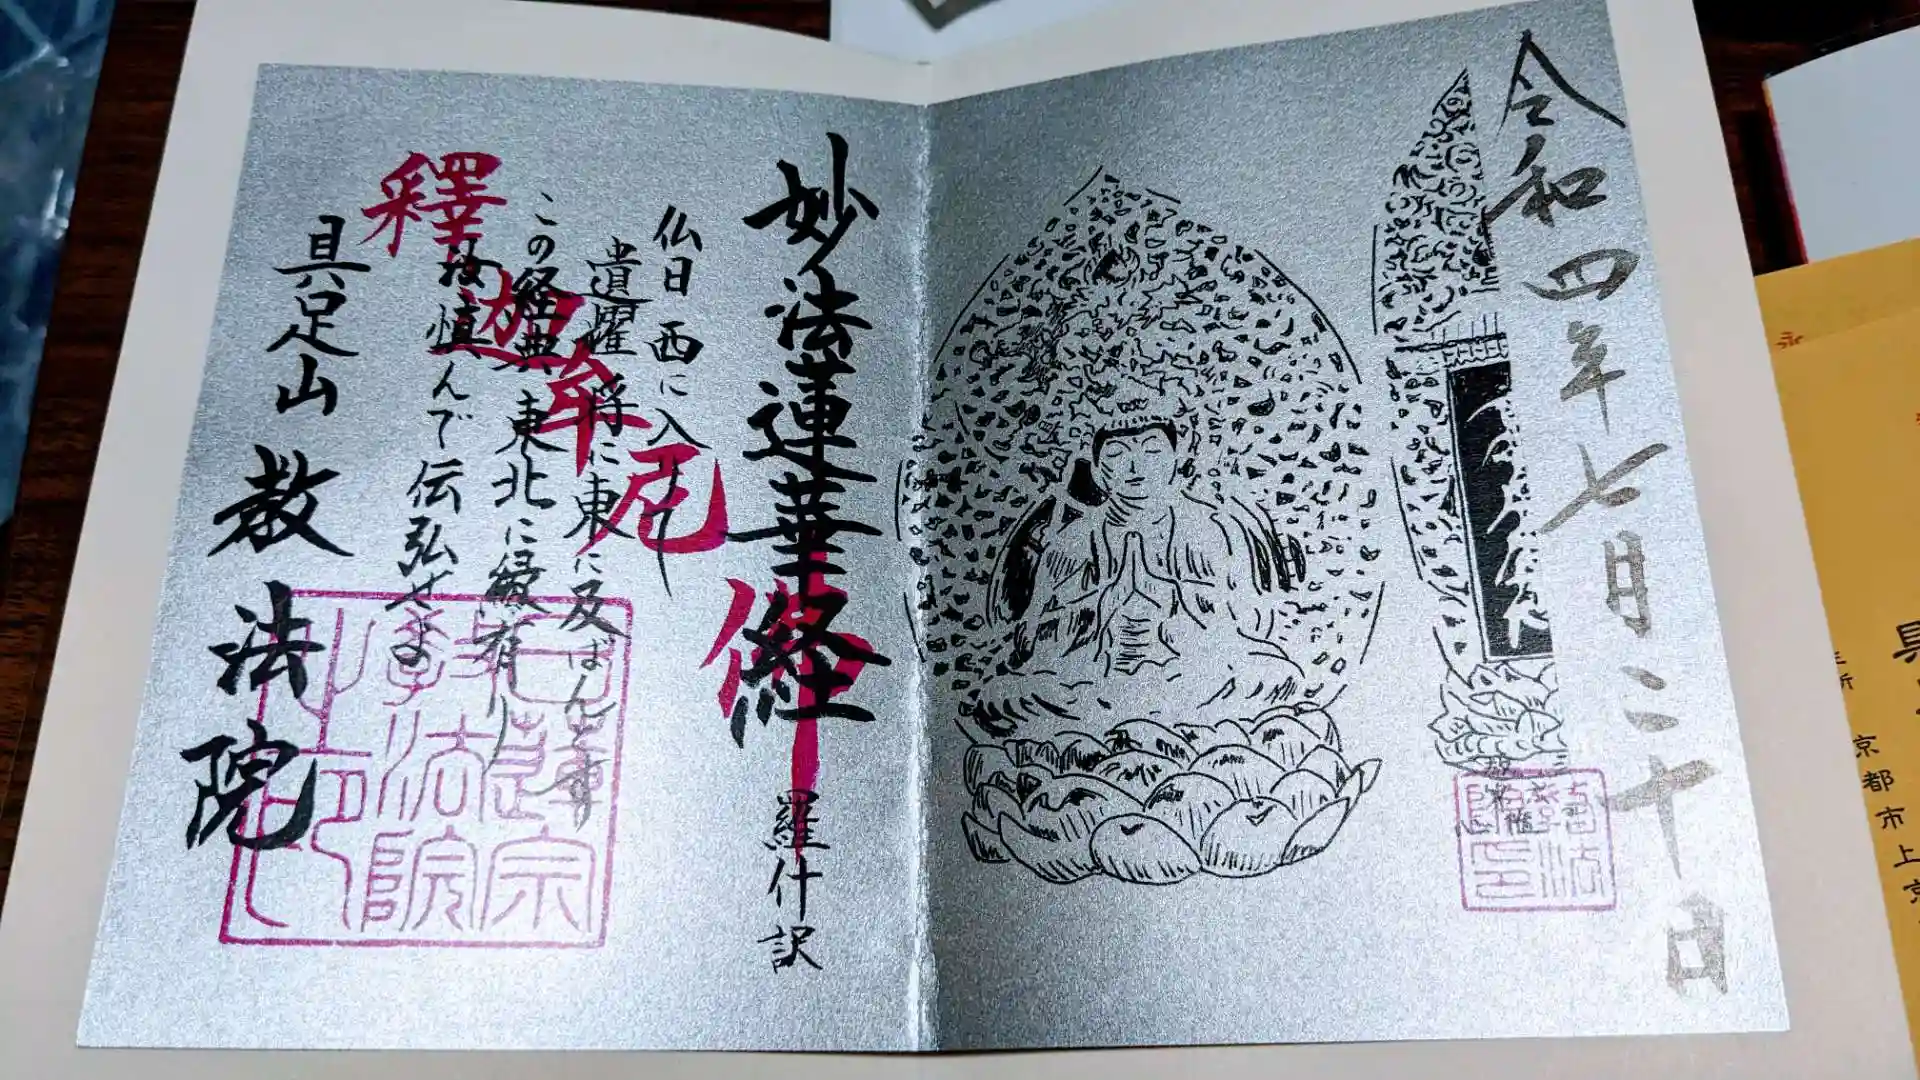 令和四年七月二十日
妙法蓮華経
羅什訳
仏日西に入りて
遺耀将に東に及ばんとす
この経典東北に縁有り
汝慎んで伝弘せよ
釋迦牟尼
具足山
教法院
法院
宗
京都市上京